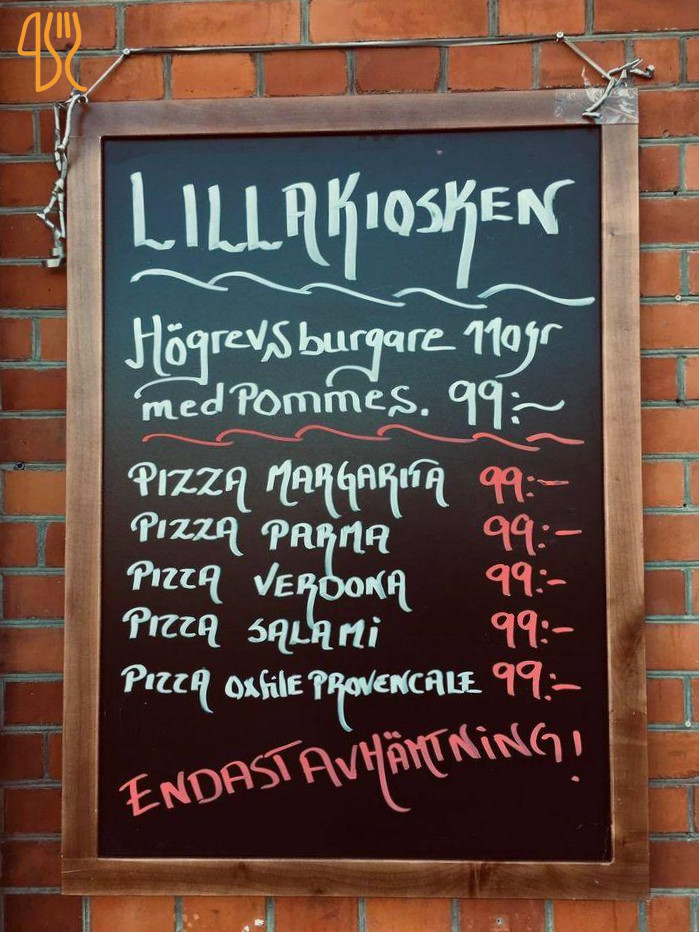 LILLAKIOSKEN
Högrevsburgare 110gr
med Pommes. 99:-
PIZZA MARGARITA 99:-
PIZZA PARMA 99:-
PIZZA VERDONA 99:-
PIZZA SALAMI 99:-
PIZZA oxfilé PROVENCALE 99:-
ENDAST AVHÄMTNING!